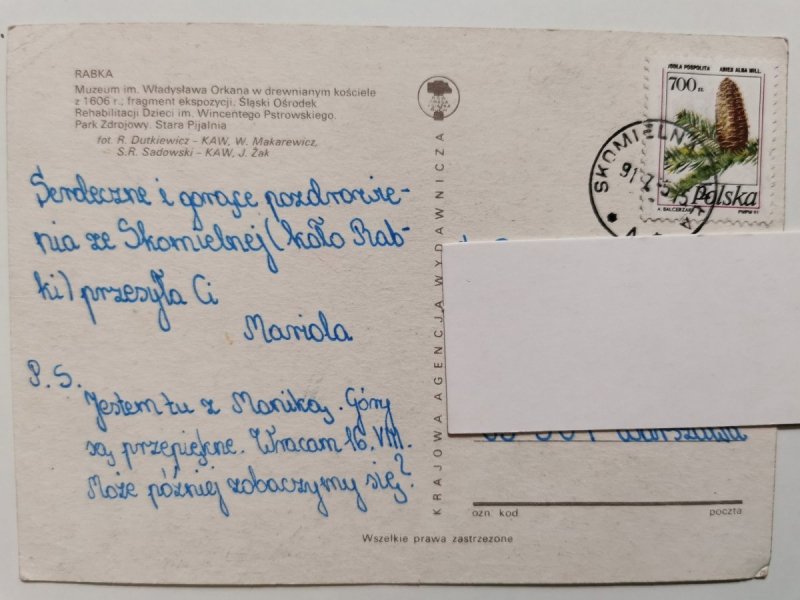 RABKA
Muzeum im. Władysława Orkana w drewnianym kościele
z 1606 r.; fragment ekspozycji. Śląski Ośrodek
Rehabilitacji Dzieci im. Wincentego Pstrowskiego.
Park Zdrojowy. Stara Pijalnia
fot. R. Dutkiewicz - KAW, W. Makarewicz,
S.R. Sadowski - KAW, J. Żak
Serdeczne i gorące pozdrowie-
nia ze Skomielnej (koło Rab-
ki) przesyła Ci
Mariola
P. S.
Jestem tu z Moniką. Góry
są przepiękne. Wracam 16. VIII.
Może później zobaczymy się?
KRAJOWA AGENCJA WYDAWNICZA
JODŁA POSPOLITA ABIES ALBA MILL.
700 zł
Polska
A. BALCERZAK PWPW 91
SKOMIELN
Warszawa
ozn. kod poczta
Wszelkie prawa zastrzeżone